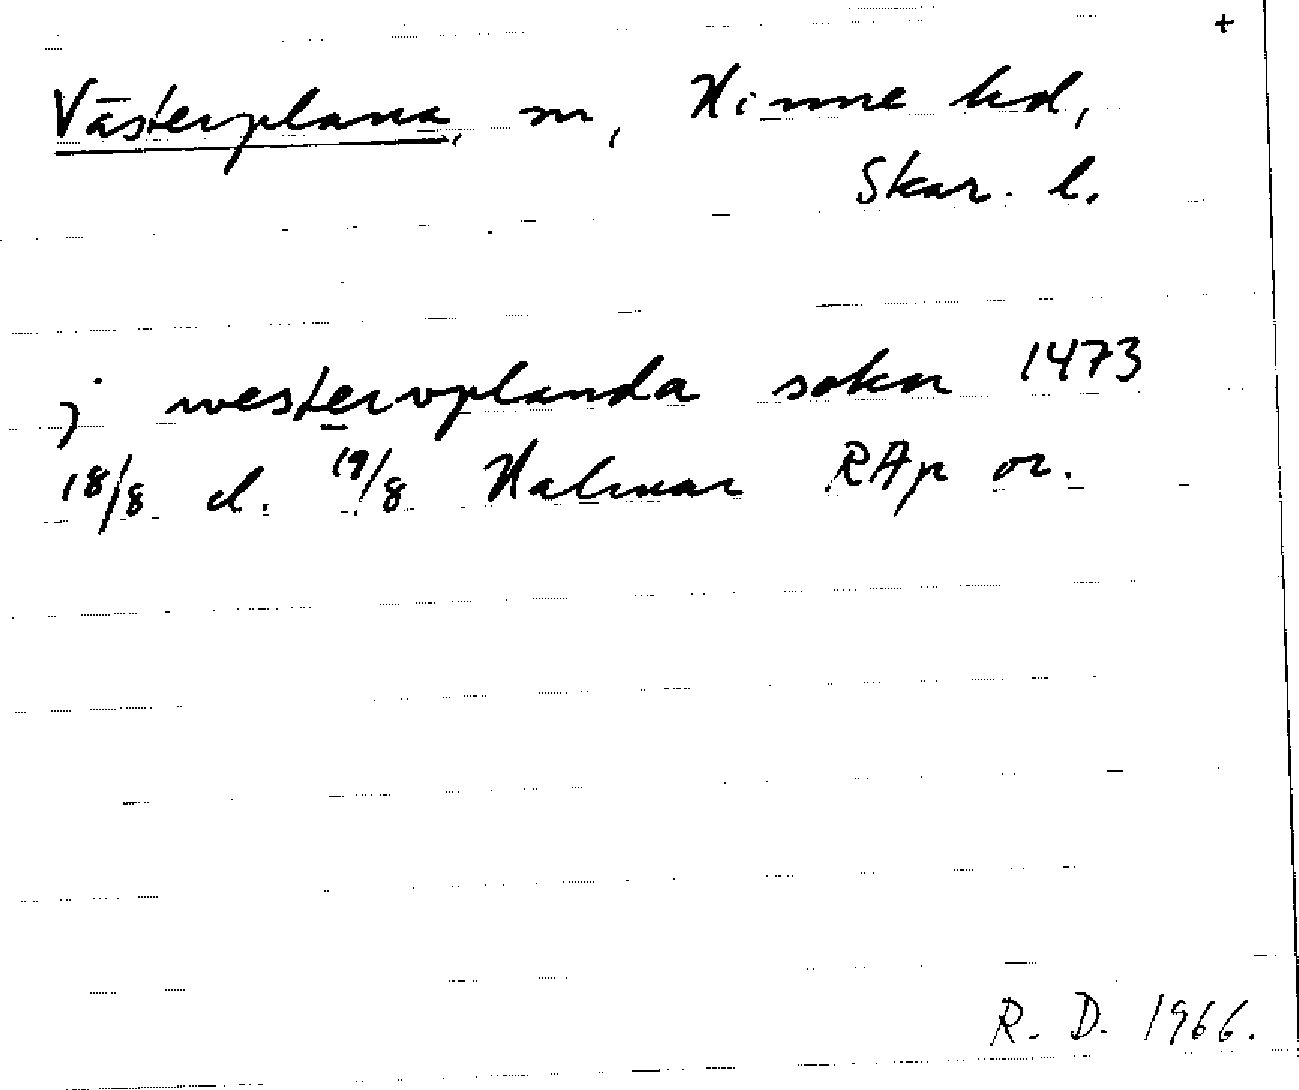 +
Västerplana, sn, Kinne hd,
Skar. l.
j westerplanda sokn 1473
18/8 el. 19/8 Kalmar RAp or.
R. D. 1966.